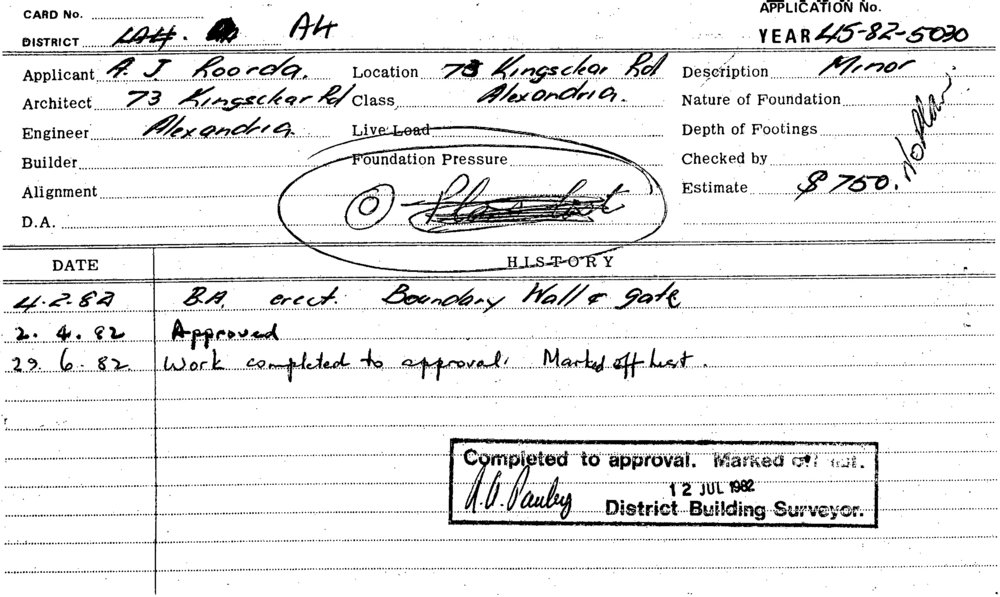 CARD No.
APPLICATION No.
DISTRICT LAH. AH
YEAR 45-82-5030
Applicant A. J Roorda.
Location 73 Kingsclear Rd
Description Minor
Architect 73 Kingsclear Rd
Class Alexandria.
Nature of Foundation
Engineer Alexandria
Live Load
Depth of Footings
Builder
Foundation Pressure
Checked by
No Plan
Alignment
Estimate $750.
D.A.
DATE HISTORY
4.2.82 B.A. erect. Boundary Wall & gate
2. 4. 82 Approved
29. 6. 82. Work completed to approval. Marked off list.
Completed to approval. Marked off list.
12 JUL 1982
District Building Surveyor.